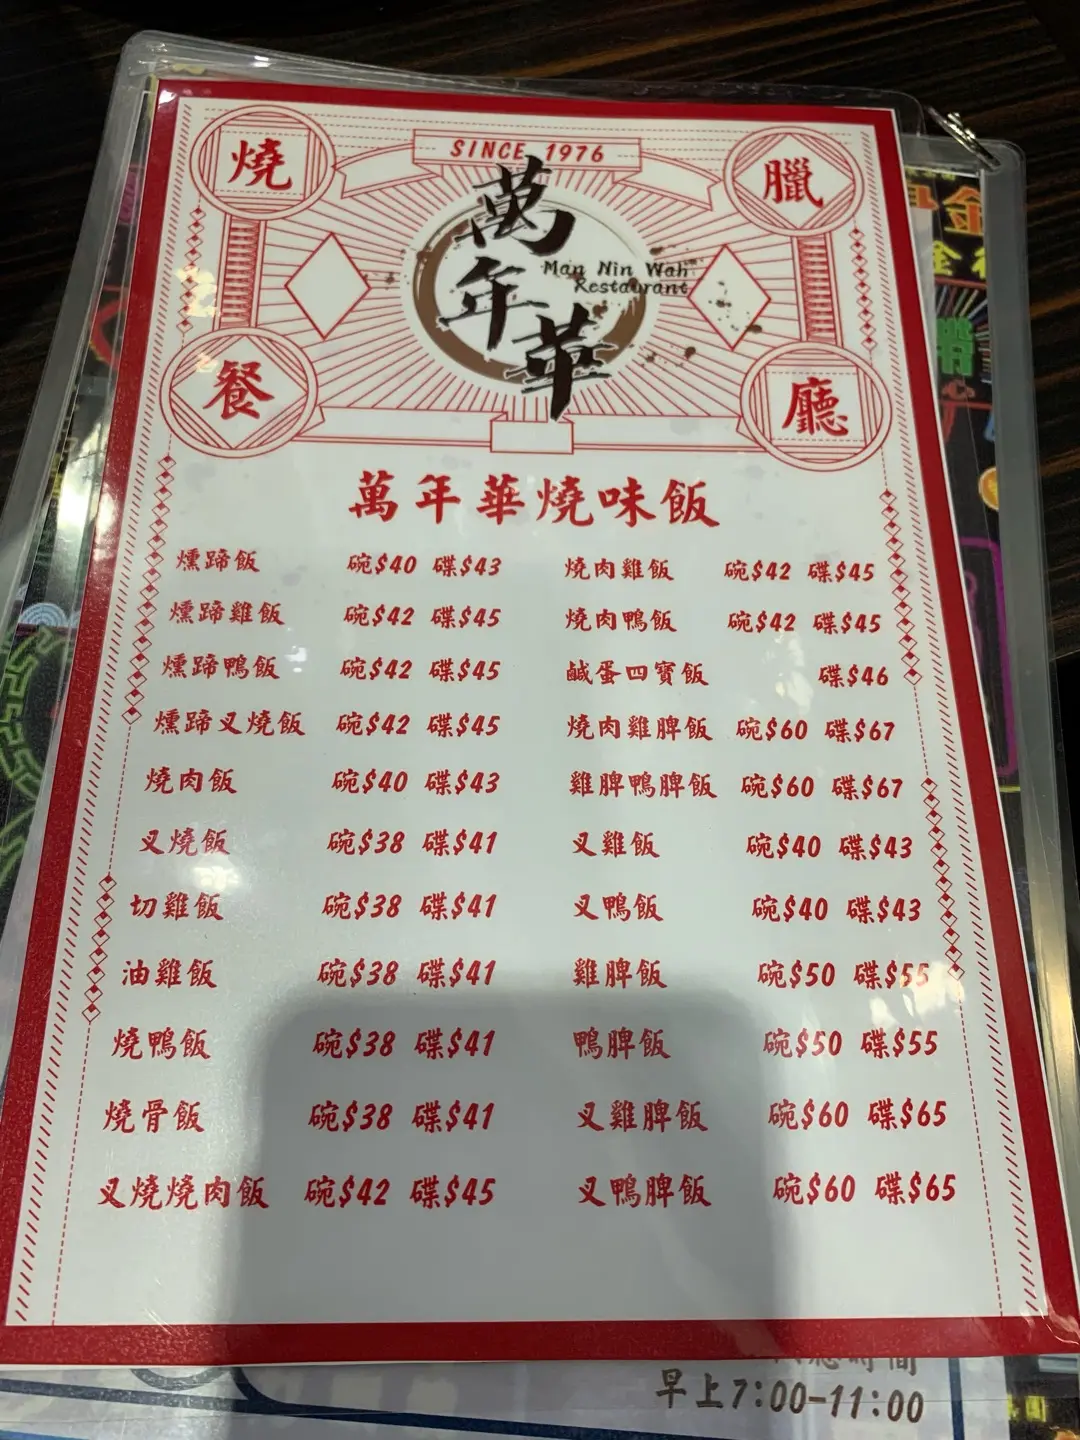 SINCE 1976
燒 臘
萬年華
Man Nin Wah
Restaurant
餐 廳
萬年華燒味飯
燻蹄飯 碗$40 碟$43
燻蹄雞飯 碗$42 碟$45
燻蹄鴨飯 碗$42 碟$45
燻蹄叉燒飯 碗$42 碟$45
燒肉飯 碗$40 碟$43
叉燒飯 碗$38 碟$41
切雞飯 碗$38 碟$41
油雞飯 碗$38 碟$41
燒鴨飯 碗$38 碟$41
燒骨飯 碗$38 碟$41
叉燒燒肉飯 碗$42 碟$45
燒肉雞飯 碗$42 碟$45
燒肉鴨飯 碗$42 碟$45
鹹蛋四寶飯 碟$46
燒肉雞脾飯 碗$60 碟$67
雞脾鴨脾飯 碗$60 碟$67
叉雞飯 碗$40 碟$43
叉鴨飯 碗$40 碟$43
雞脾飯 碗$50 碟$55
鴨脾飯 碗$50 碟$55
叉雞脾飯 碗$60 碟$65
叉鴨脾飯 碗$60 碟$65
早上7:00-11:00